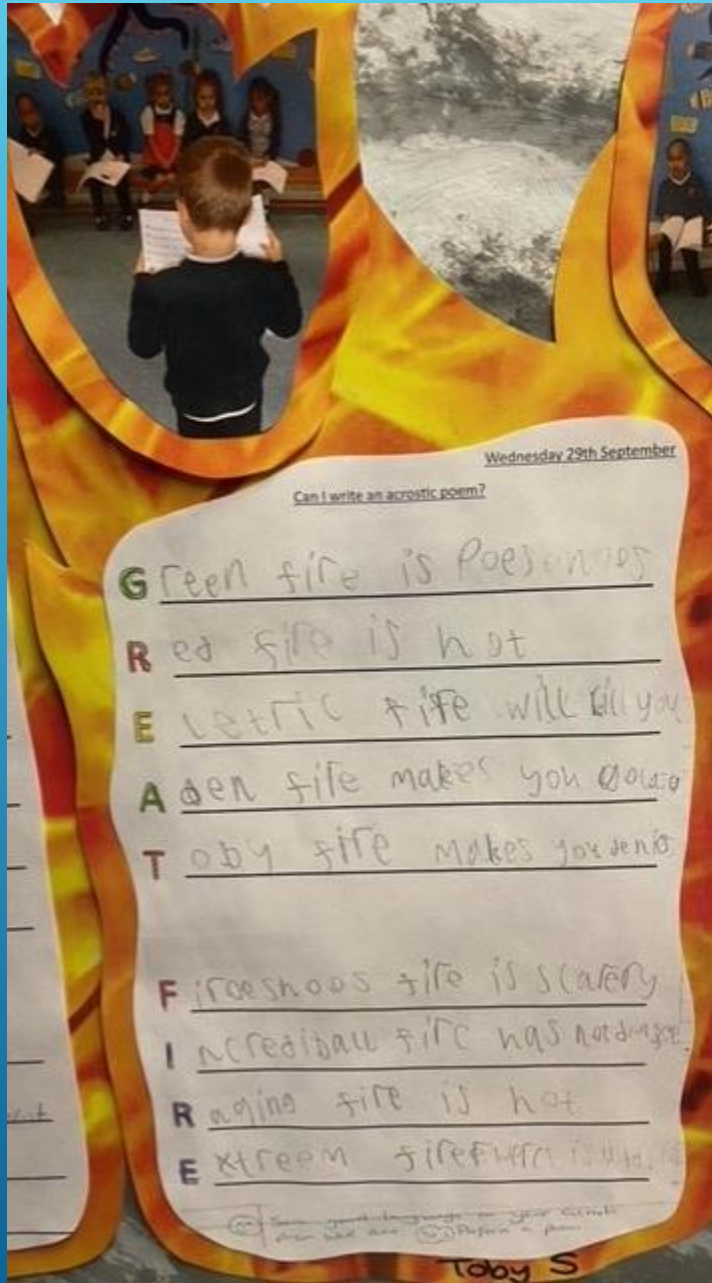 Wednesday 29th September
Can I write an acrostic poem?
Green fire is Poesonoos
Red fire is hot
Eletric fire will kill you
Aden fire makes you
Toby fire makes you
Firoeshoos fire is scarery
Incrediball fire has
Raging fire is hot
Extreem fire
Some good language in your
Perform a poem
Toby S